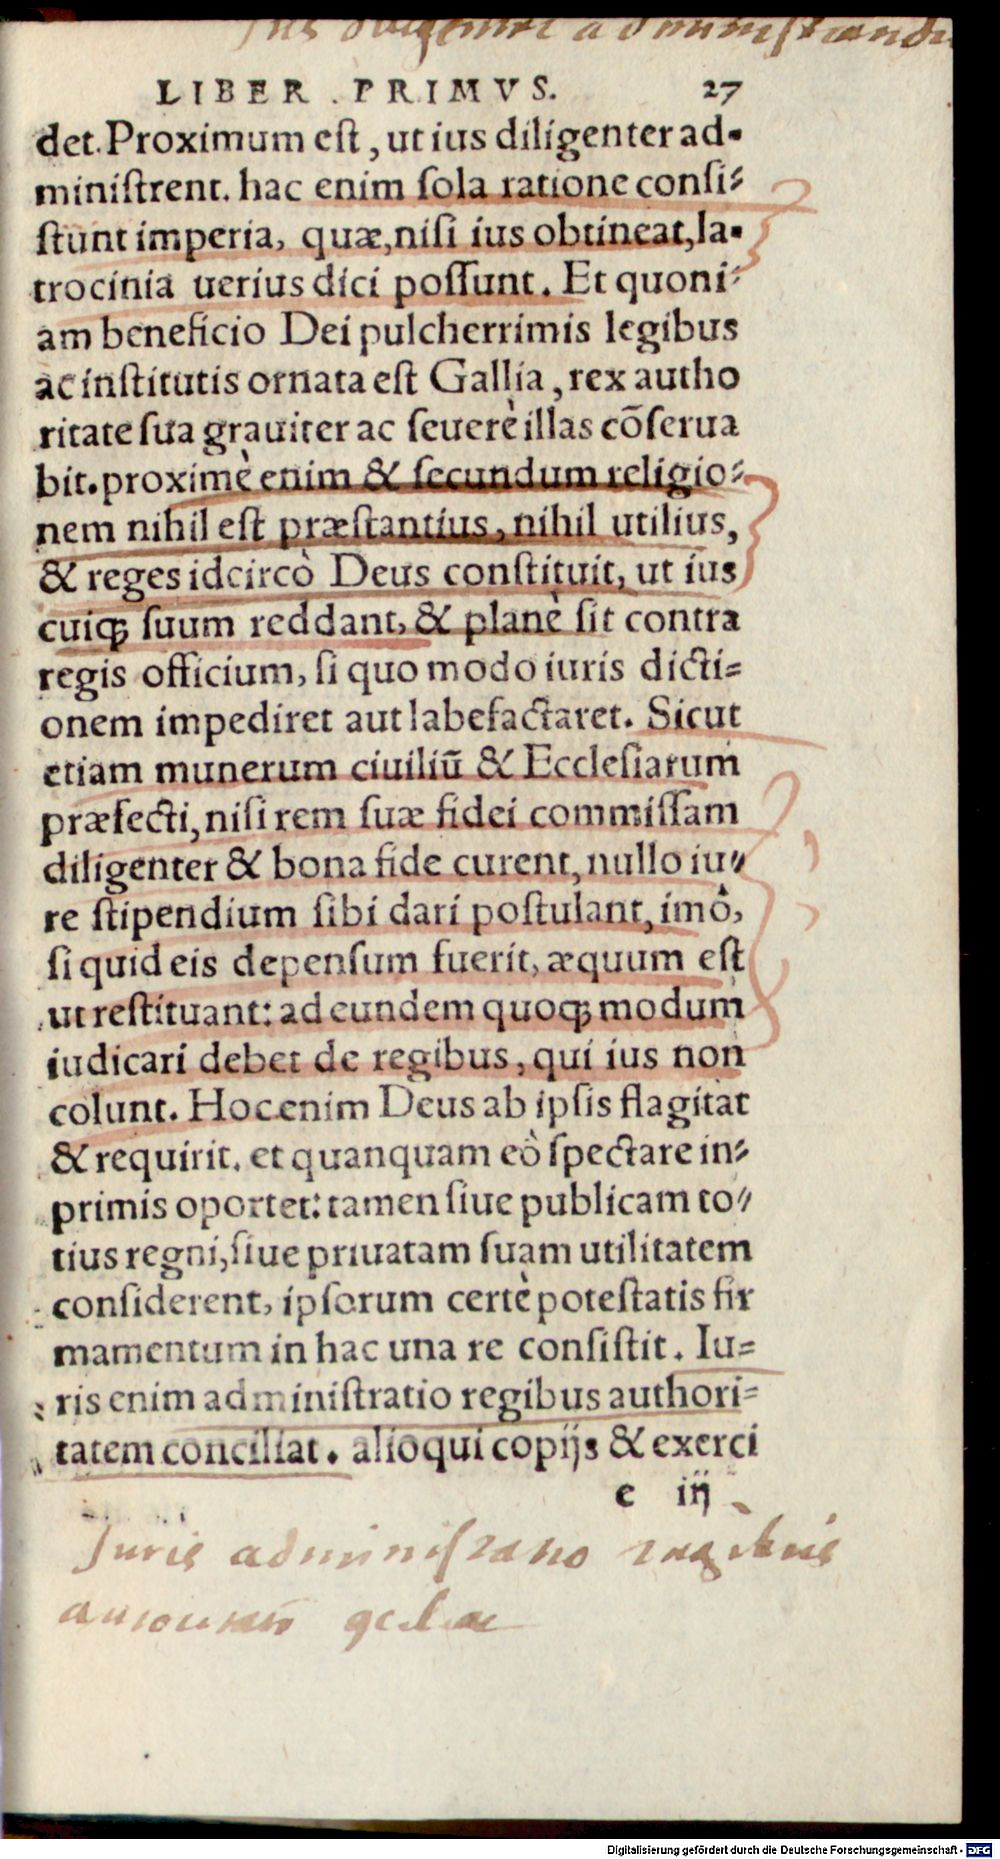 Ius diligenter administrandu
LIBER PRIMVS. 27
det. Proximum eſt, ut ius diligenter ad-
miniſtrent. hac enim ſola ratione conſi-
ſtunt imperia, quæ, niſi ius obtineat, la-
trocinia uerius dici poſſunt. Et quoni-
am beneficio Dei pulcherrimis legibus
ac inſtitutis ornata eſt Gallia, rex autho
ritate ſua grauiter ac ſeuerè illas cõſerua
bit. proximè enim & ſecundum religio-
nem nihil eſt præſtantius, nihil utilius,
& reges idcircò Deus conſtituit, ut ius
cuiqꝫ ſuum reddant, & planè ſit contra
regis officium, ſi quo modo iuris dicti-
onem impediret aut labefactaret. Sicut
etiam munerum ciuiliũ & Eccleſiarum
præfecti, niſi rem ſuæ fidei commiſſam
diligenter & bona fide curent, nullo iu-
re ſtipendium ſibi dari poſtulant, imò,
ſi quid eis depenſum fuerit, æquum eſt
ut reſtituant: ad eundem quoqꝫ modum
iudicari debet de regibus, qui ius non
colunt. Hoc enim Deus ab ipſis flagitat
& requirit. et quanquam eò ſpectare in-
primis oportet: tamen ſiue publicam to-
tius regni, ſiue priuatam ſuam utilitatem
conſiderent, ipſorum certè poteſtatis fir
mamentum in hac una re conſiſtit. Iu-
ris enim adminiſtratio regibus authori-
tatem conciliat. alioqui copijs & exerci
e iij
Juris adminiſtratio regibus